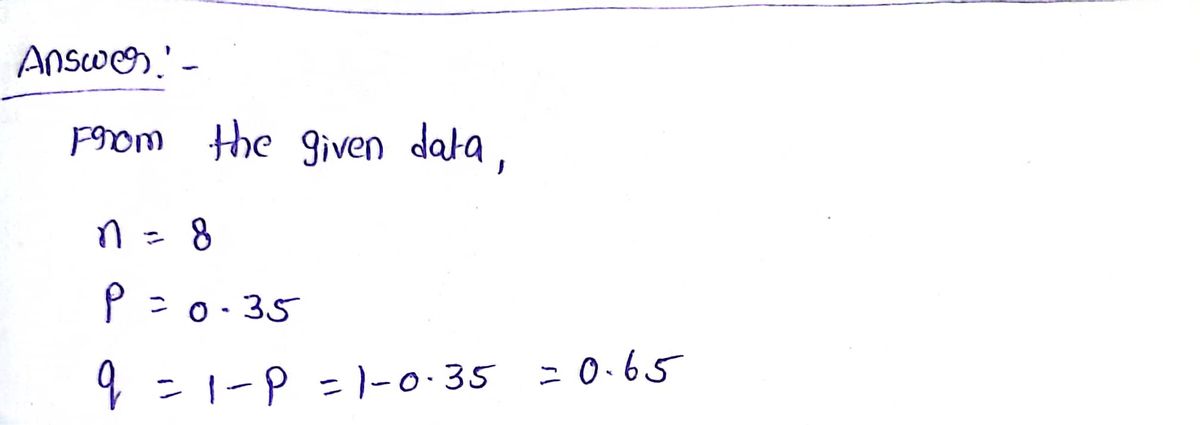 Answer:-
From the given data,
n = 8
P = 0.35
q = 1-P = 1-0.35 = 0.65